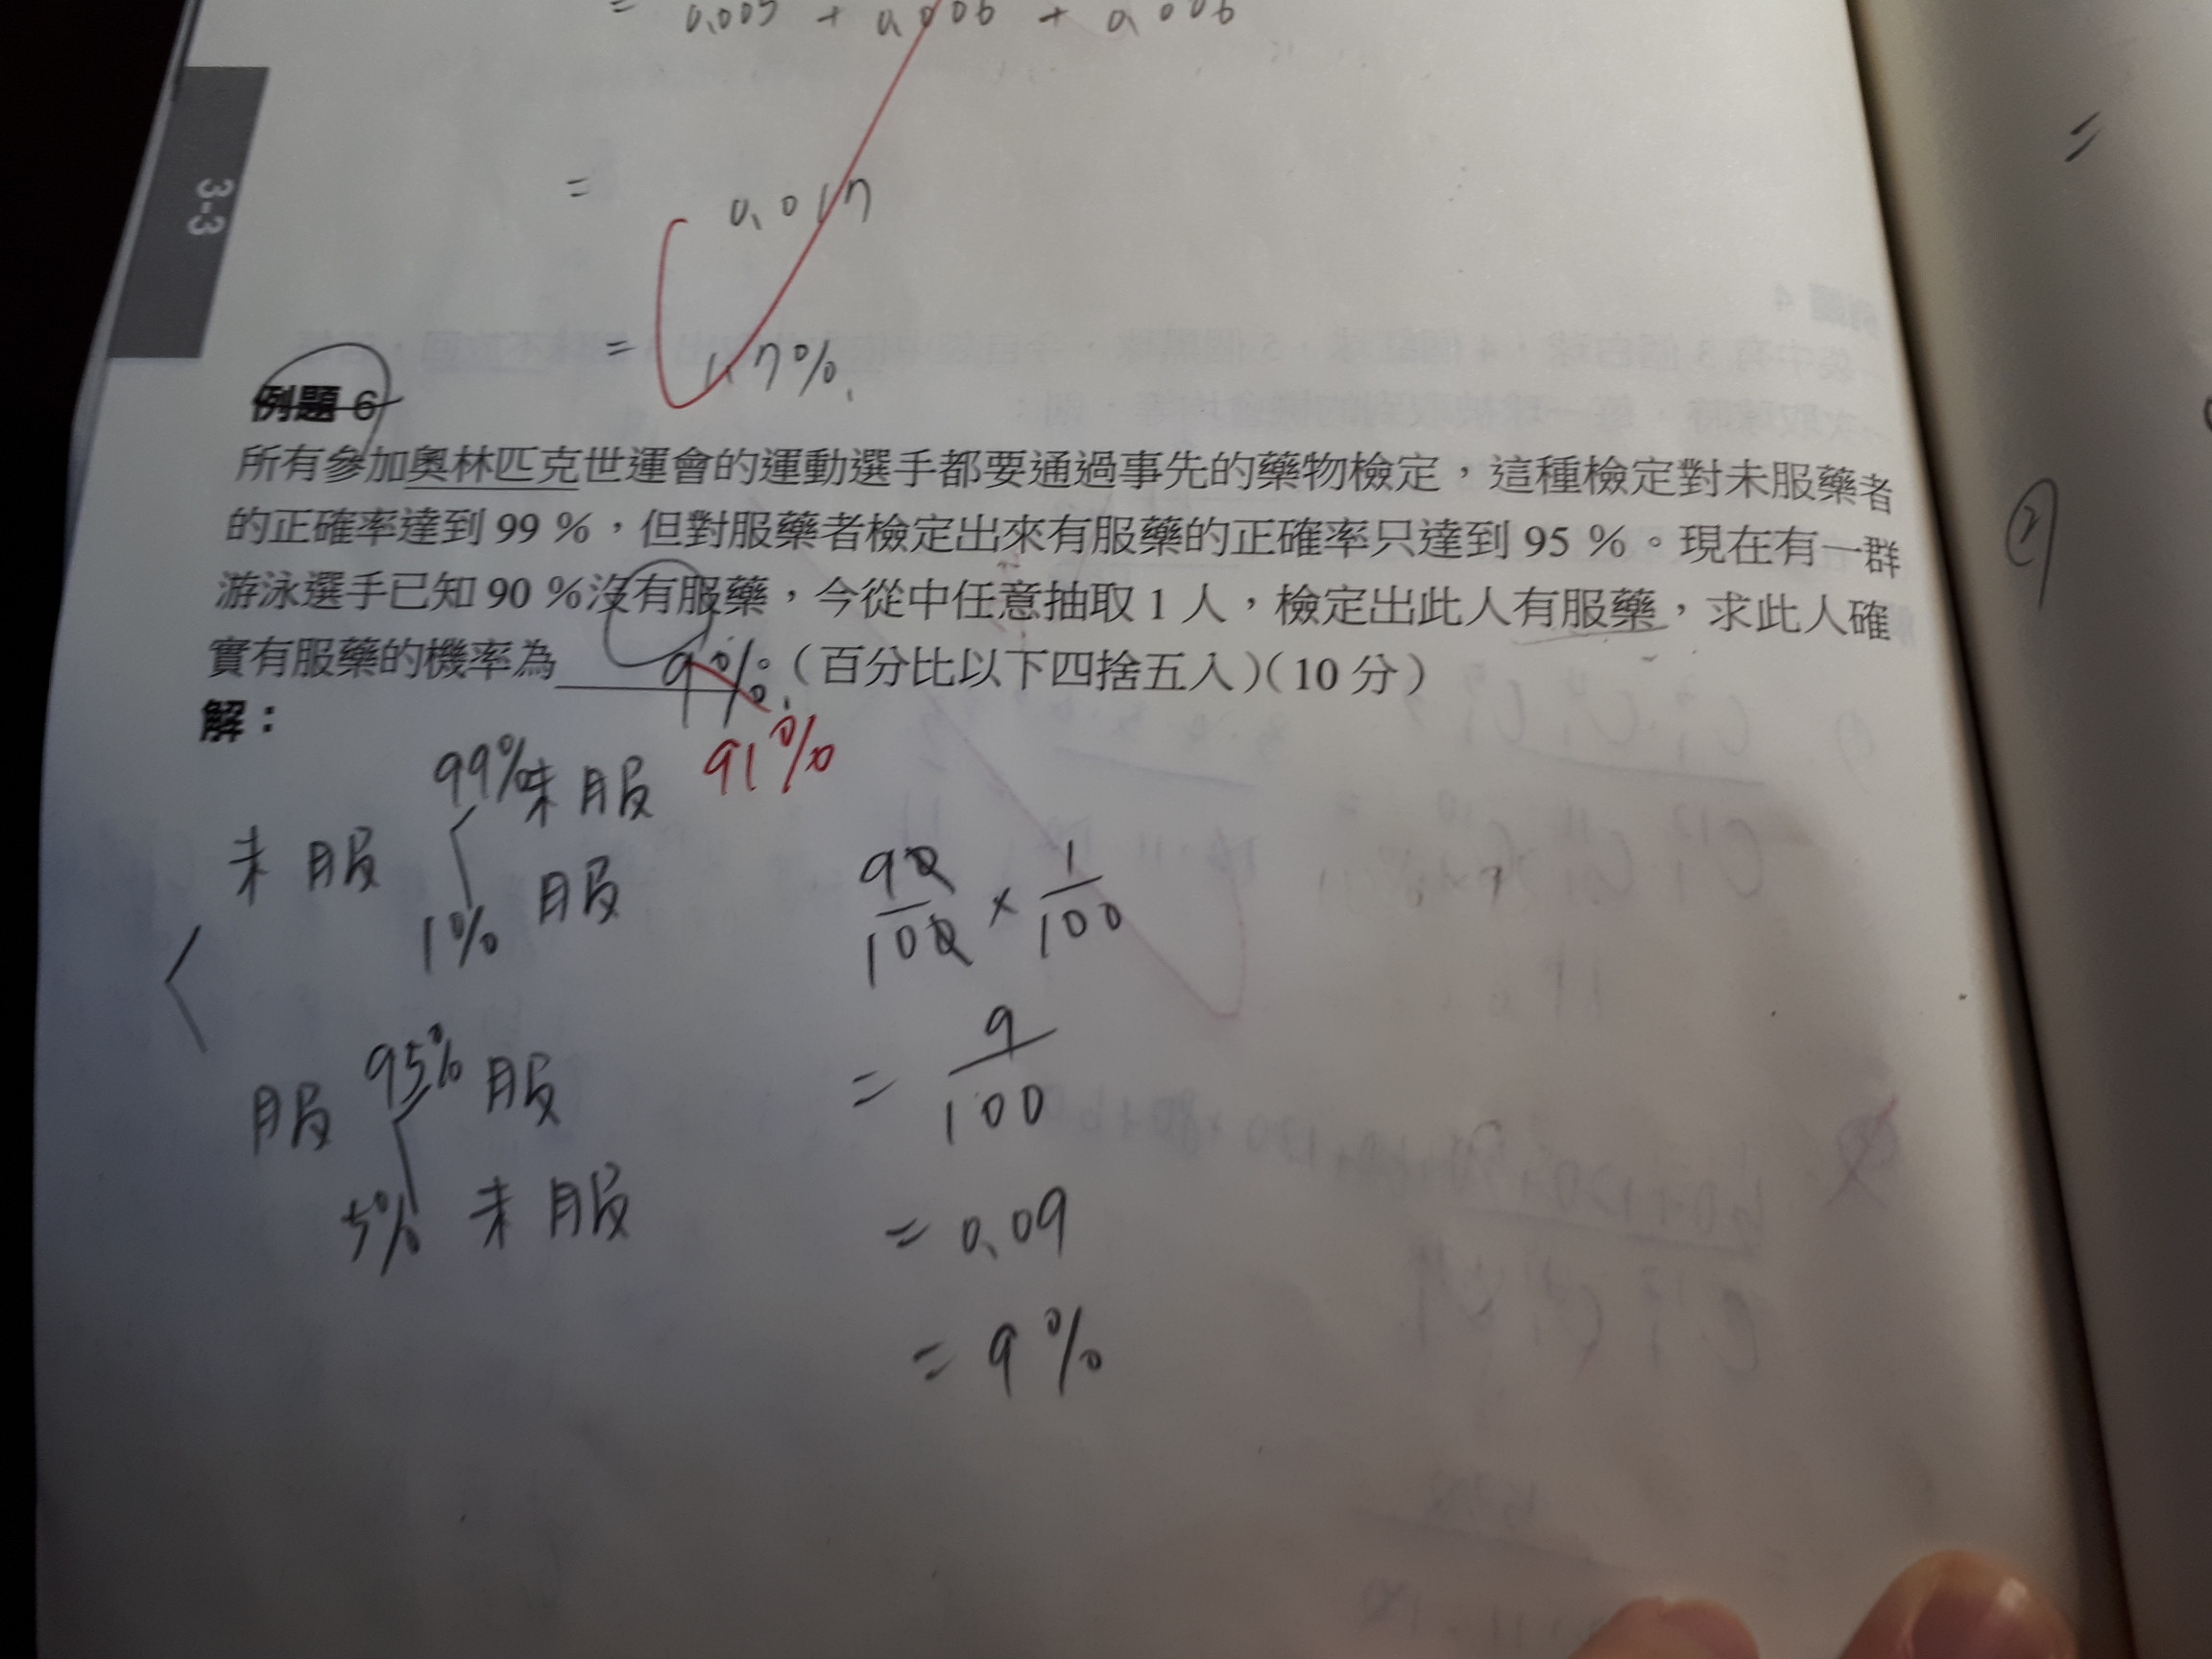 = 0.005 + 0.006 + 0.006
= 0.017
= 1.7%
3-3
例題 6
所有參加奧林匹克世運會的運動選手都要通過事先的藥物檢定，這種檢定對未服藥者
的正確率達到 99 %，但對服藥者檢定出來有服藥的正確率只達到 95 %。現在有一群
游泳選手已知 90 %沒有服藥，今從中任意抽取 1 人，檢定出此人有服藥，求此人確
實有服藥的機率為 9% （百分比以下四捨五入）（10 分）
91%
解：
未服
99% 未服
1% 服
服
95% 服
5% 未服
90/100 × 1/100
= 9/100
= 0.09
= 9%
=
②